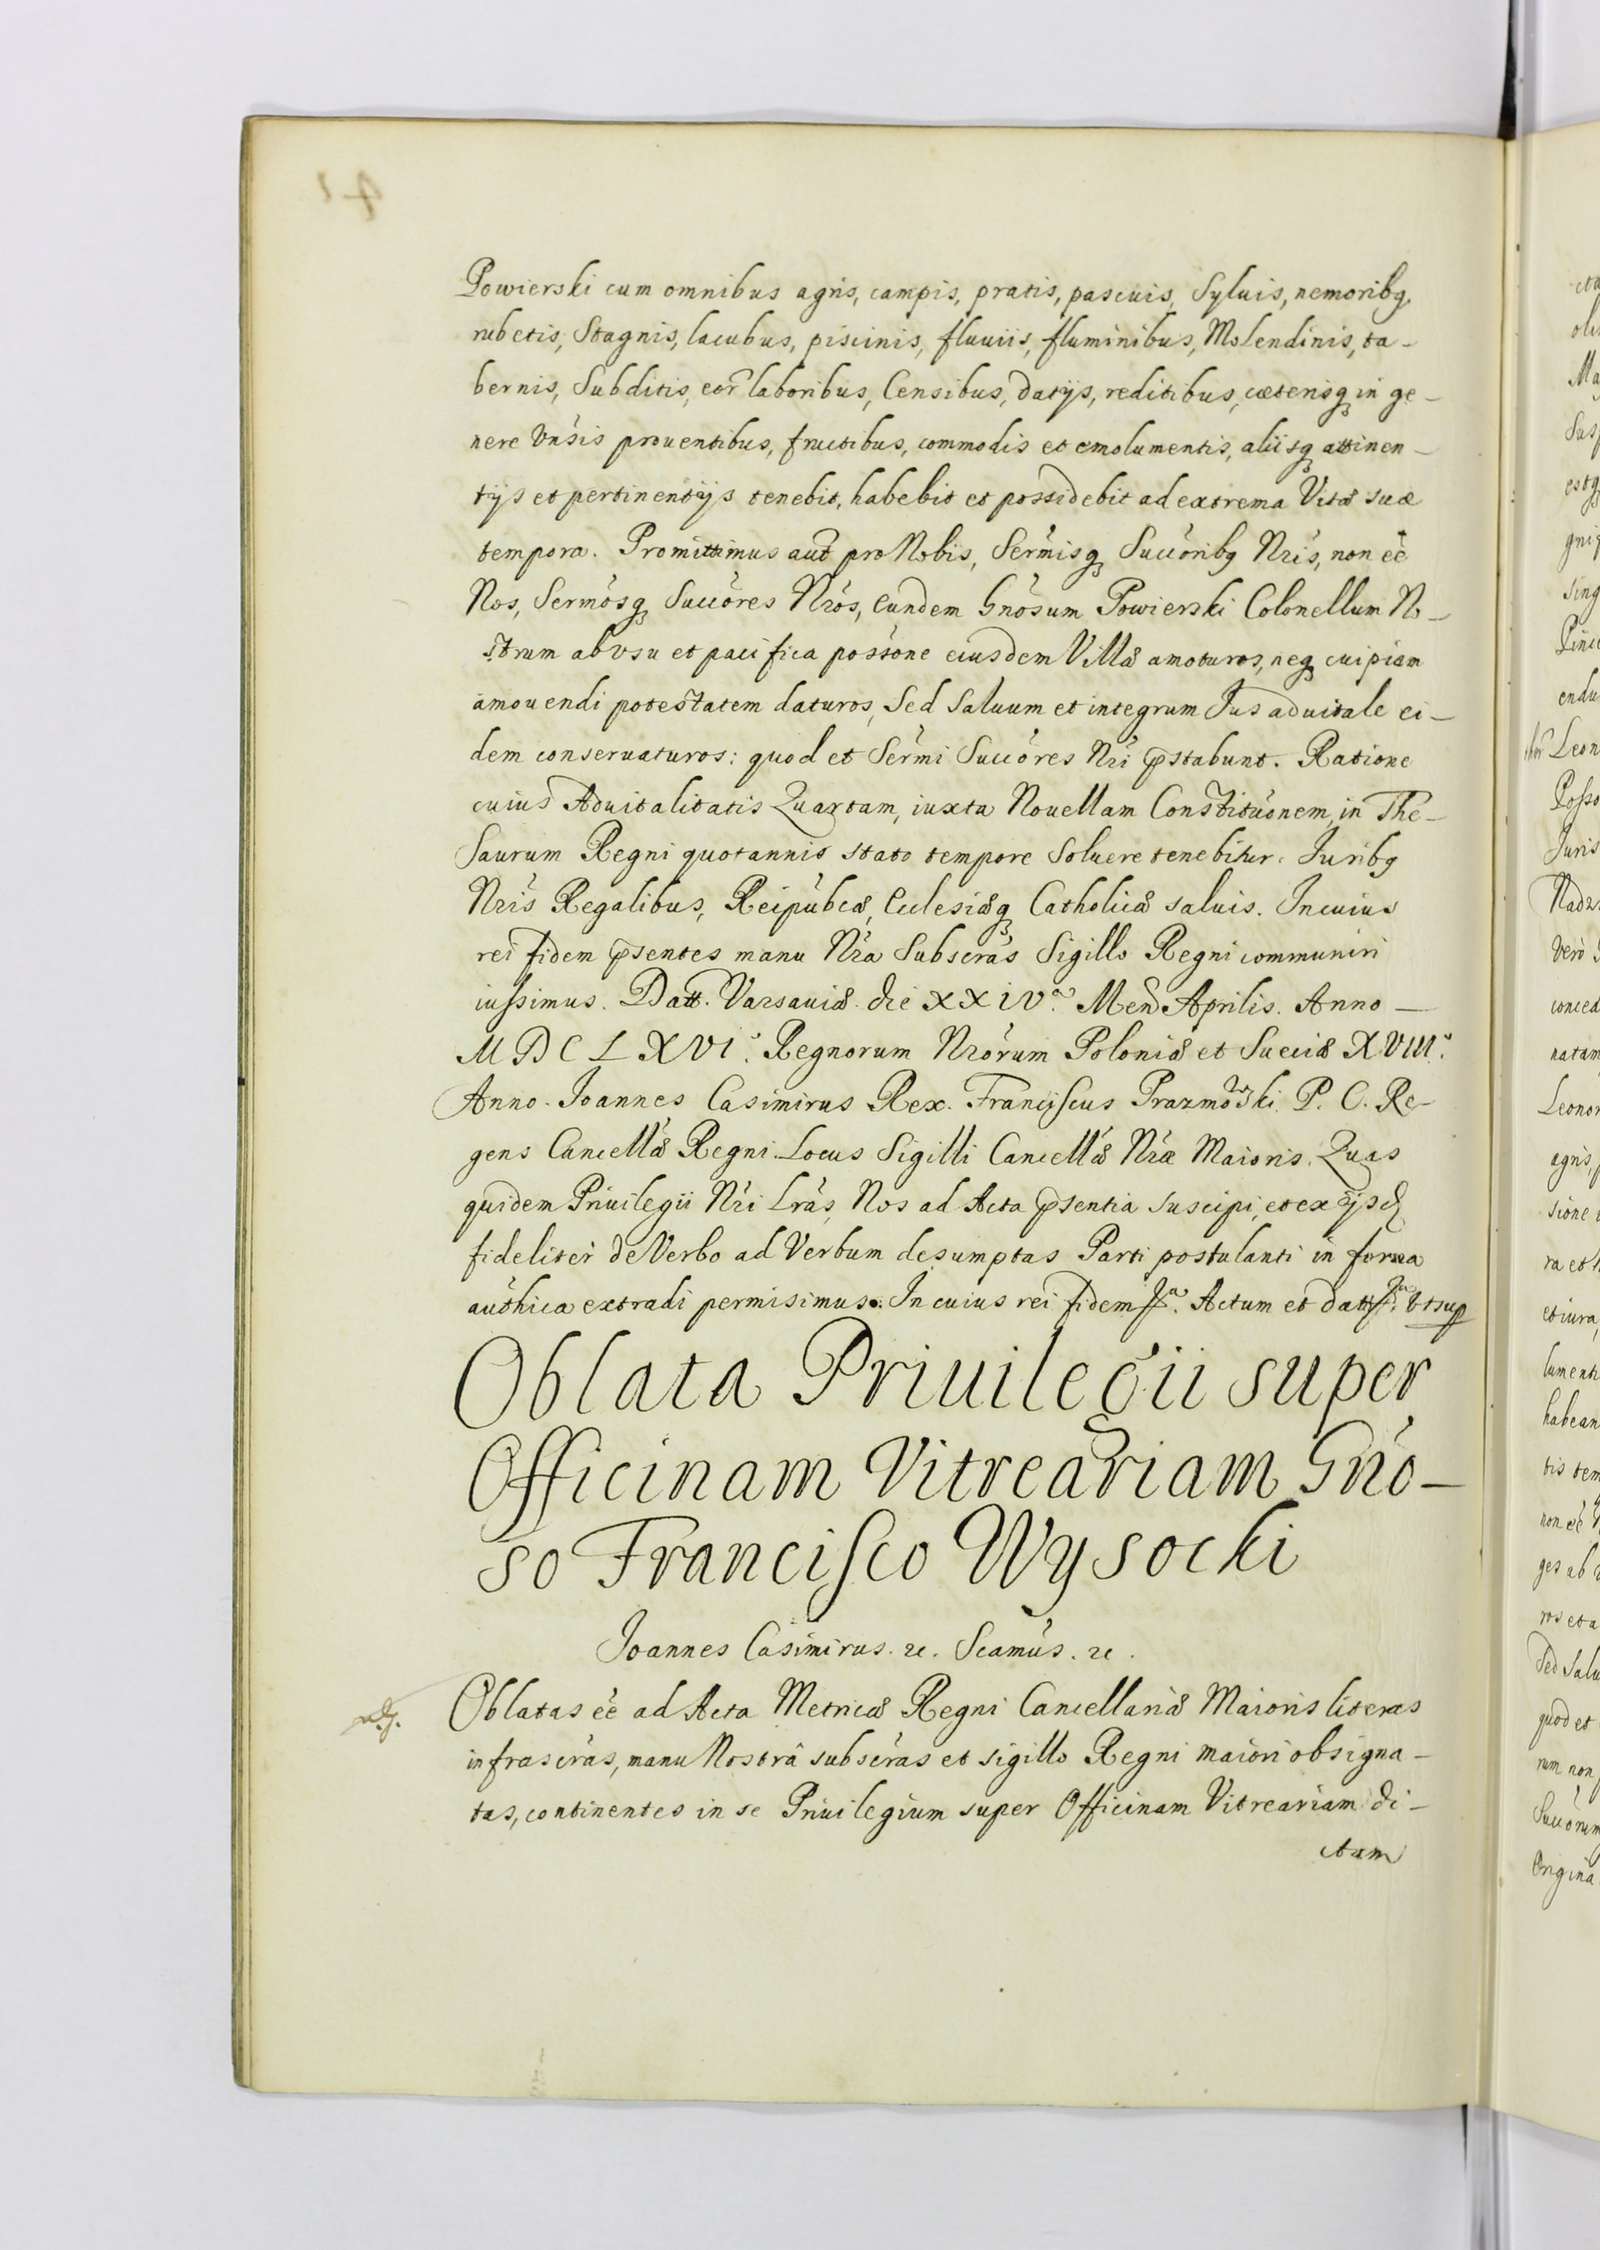 Powierski cum omnibus agris, campis, pratis, pascuis, Syluis, nemoribq,
rubetis, Stagnis, lacubus, piscinis, fluuiis, fluminibus, Molendinis, ta-
bernis, Subditis, eor̃ laboribus, Censibus, datijs, reditibus, cæterisq in ge-
nere Vńsis prouentibus, fructibus, commodis et emolumentis, aliisq attinen-
tijs et pertinentijs tenebit, habebit et possidebit ad extrema Vitæ suæ
tempora. Promittimus aut̃ pro Nobis, Sermisq Succoribq Nris, non eè
Nos, Sermosq Succores Nros, Eundem Gnosum Powierski Colonellum No-
strum ab vsu et pacifica possone eiusdem Villæ amoturos, neq cuipiam
amouendi potestatem daturos, Sed Saluum et integrum Jus aduitale ei-
dem conseruaturos: quod et Sermi Succores Nri pstabunt. Ratione
cuius Aduitalitatis Quartam, iuxta Nouellam Constituonem, in The-
Saurum Regni quotannis stato tempore Soluere tenebitur. Juribq
Nris Regalibus, Reipubcæ, Eclesiæq Catholicæ saluis. In cuius
rei fidem psentes manu Nra Subscras Sigillo Regni communiri
iussimus. Datt. Varsauiæ die XXIVa. Men Aprilis. Anno -
MDCLXVIo. Regnorum Nrorum Poloniæ et Sueciæ XVIIIo.
Anno. Joannes Casimirus Rex. Francijscus Prazmowski P. C. Re-
gens Cancellæ Regni. Locus Sigilli Cancellæ Nræ Maioris. Quas
quidem Priuilegii Nri Lras, Nos ad Acta psentia suscipi, et ex ijsd
fideliter de Verbo ad Verbum desumptas Parti postulanti in forma
authica extradi permisimus. In cuius rei fidem Actum et datt Vt sup
Oblata Priuilegii super
Officinam Vitreariam Gńo-
so Francisco Wysocki
Joannes Casimirus. ꝛc. Scamus. ꝛc.
Oblatas eè ad Acta Metricæ Regni Cancellariæ Maioris literas
infrascras, manu Nostrâ subscras et sigillo Regni maiori obsigna-
tas, continentes in se Priuilegium super Officinam Vitreariam di-
ctam